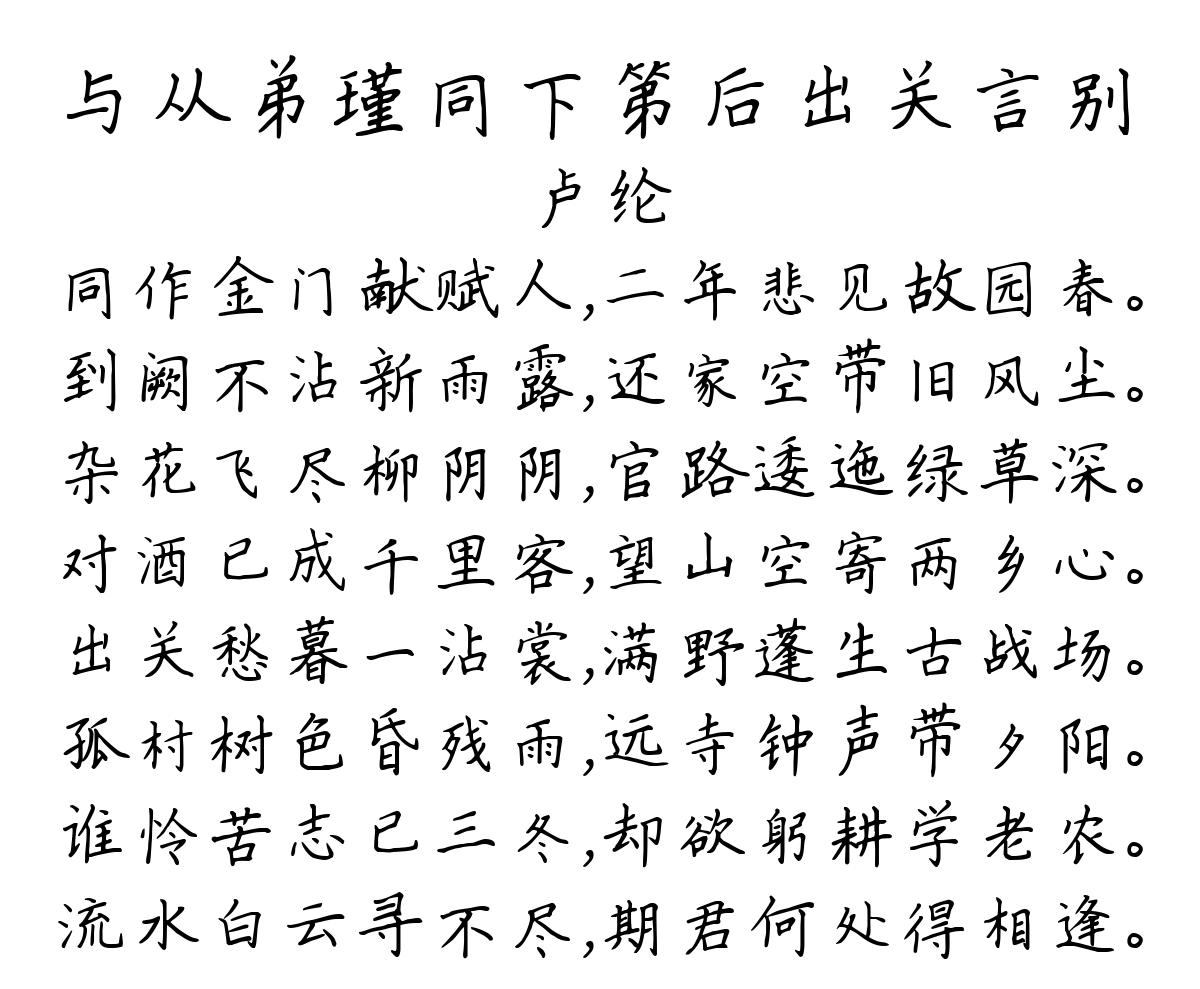 与从弟瑾同下第后出关言别
卢纶
同作金门献赋人,二年悲见故园春。
到阙不沾新雨露,还家空带旧风尘。
杂花飞尽柳阴阴,官路逶迤绿草深。
对酒已成千里客,望山空寄两乡心。
出关愁暮一沾裳,满野蓬生古战场。
孤村树色昏残雨,远寺钟声带夕阳。
谁怜苦志已三冬,却欲躬耕学老农。
流水白云寻不尽,期君何处得相逢。